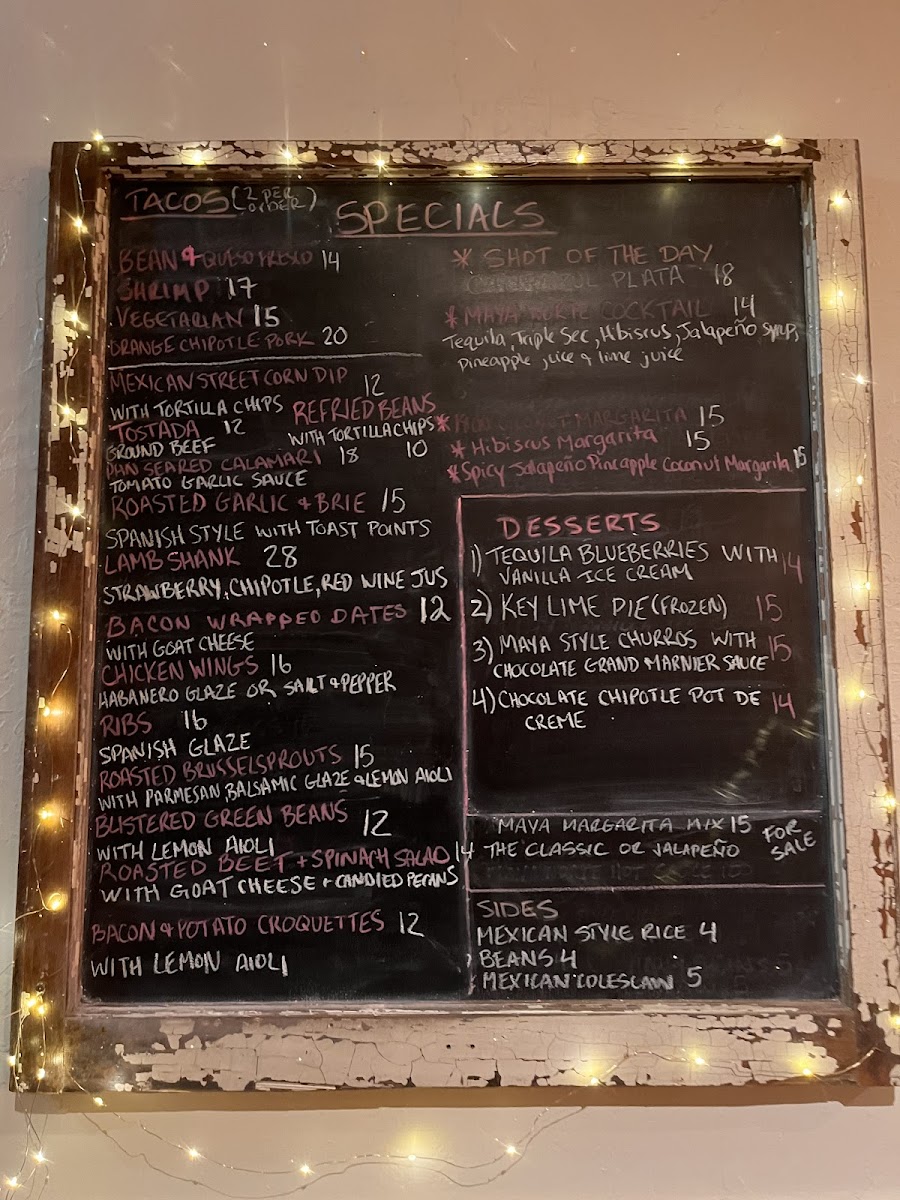 TACOS (2 PER ORDER)
SPECIALS
BEAN & QUESO FRESCO 14
SHRIMP 17
VEGETARIAN 15
ORANGE CHIPOTLE PORK 20
MEXICAN STREET CORN DIP 12
WITH TORTILLA CHIPS
REFRIED BEANS
WITH TORTILLA CHIPS
10
TOSTADA 12
GROUND BEEF
PAN SEARED CALAMARI 18
TOMATO GARLIC SAUCE
ROASTED GARLIC & BRIE 15
SPANISH STYLE WITH TOAST POINTS
LAMB SHANK 28
STRAWBERRY, CHIPOTLE, RED WINE JUS
BACON WRAPPED DATES 12
WITH GOAT CHEESE
CHICKEN WINGS 16
HABANERO GLAZE OR SALT & PEPPER
RIBS 16
SPANISH GLAZE
ROASTED BRUSSELSPROUTS 15
WITH PARMESAN, BALSAMIC GLAZE & LEMON AIOLI
BLISTERED GREEN BEANS 12
WITH LEMON AIOLI
ROASTED BEET + SPINACH SALAD 14
WITH GOAT CHEESE + CANDIED PECANS
BACON & POTATO CROQUETTES 12
WITH LEMON AIOLI
* SHOT OF THE DAY
PLATA 18
* MAYA FORTE COCKTAIL 14
Tequila, Triple Sec, Hibiscus, Jalapeño syrup,
pineapple juice & lime juice
* MARGARITA 15
* Hibiscus Margarita 15
* Spicy Jalapeño Pineapple Coconut Margarita 15
DESSERTS
1) TEQUILA BLUEBERRIES WITH 14
VANILLA ICE CREAM
2) KEY LIME PIE (FROZEN) 15
3) MAYA STYLE CHURROS WITH 15
CHOCOLATE GRAND MARNIER SAUCE
4) CHOCOLATE CHIPOTLE POT DE 14
CREME
MAYA MARGARITA MIX 15
THE CLASSIC OR JALAPEÑO
FOR SALE
SIDES
MEXICAN STYLE RICE 4
BEANS 4
MEXICAN COLESLAW 5